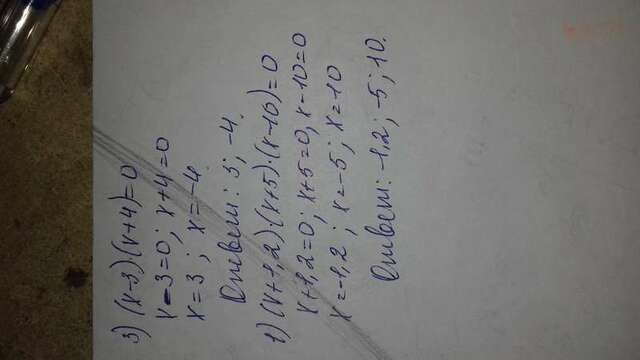 3) (x-3)(x+4)=0
x-3=0; x+4=0
x=3; x=-4
Ответ: 3; -4.
1) (x+1,2)·(x+5)·(x-10)=0
x+1,2=0; x+5=0, x-10=0
x=-1,2; x=-5; x=10
Ответ: -1,2; -5; 10.